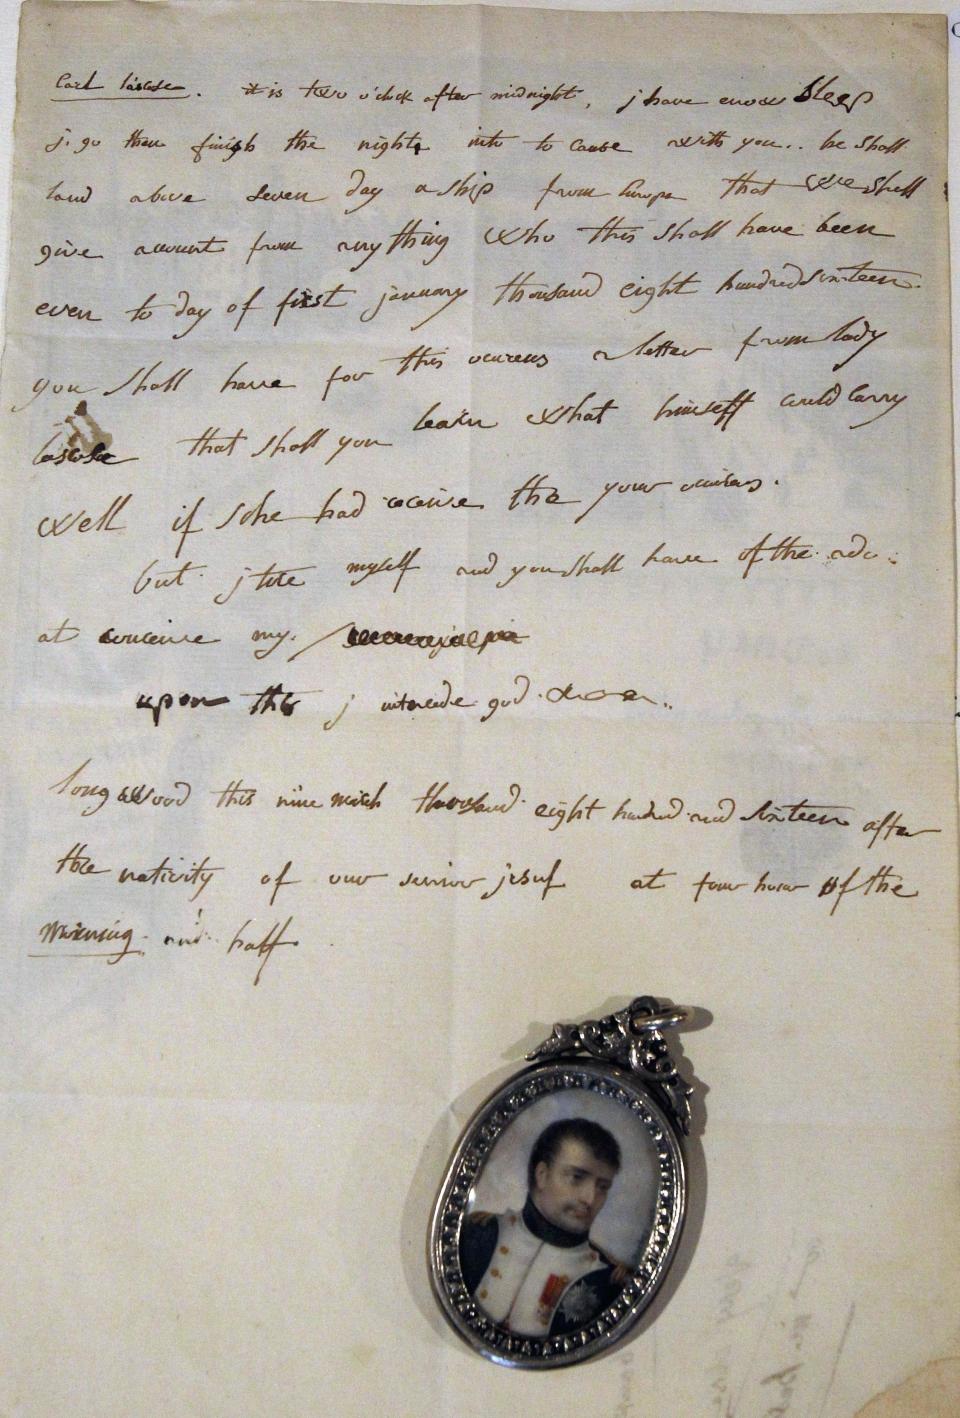 Earl lascase. it is two o'clock after midnight, j have enow sleep
j. go then finish the night into to cause with you.. he shall
land above seven day a ship from Europe that we shall
give account from any thing who this shall have been
even to day of first january thousand eight hundred sixteen.
you shall have for this ocurens a letter from lady
lascase that shall you learn what himself could carry
well if sche had receive the your ocurens.
but j tire myself and you shall have of the ado
at conceive my.
upon this j intercede god
longwood this nine march thousand eight hundred and sixteen after
the nativity of our senior jesus at four hour of the
morning and half